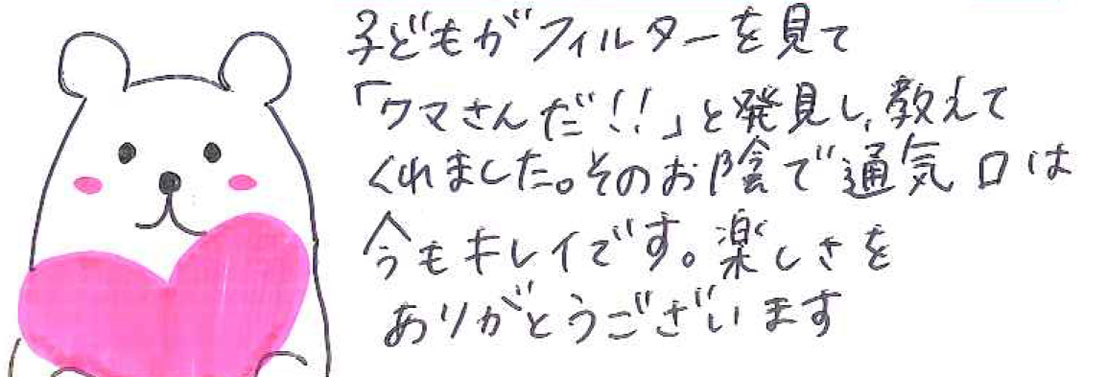 子どもがフィルターを見て
「クマさんだ!!」と発見し、教えて
くれました。そのお陰で通気口は
今もキレイです。楽しさを
ありがとうございます